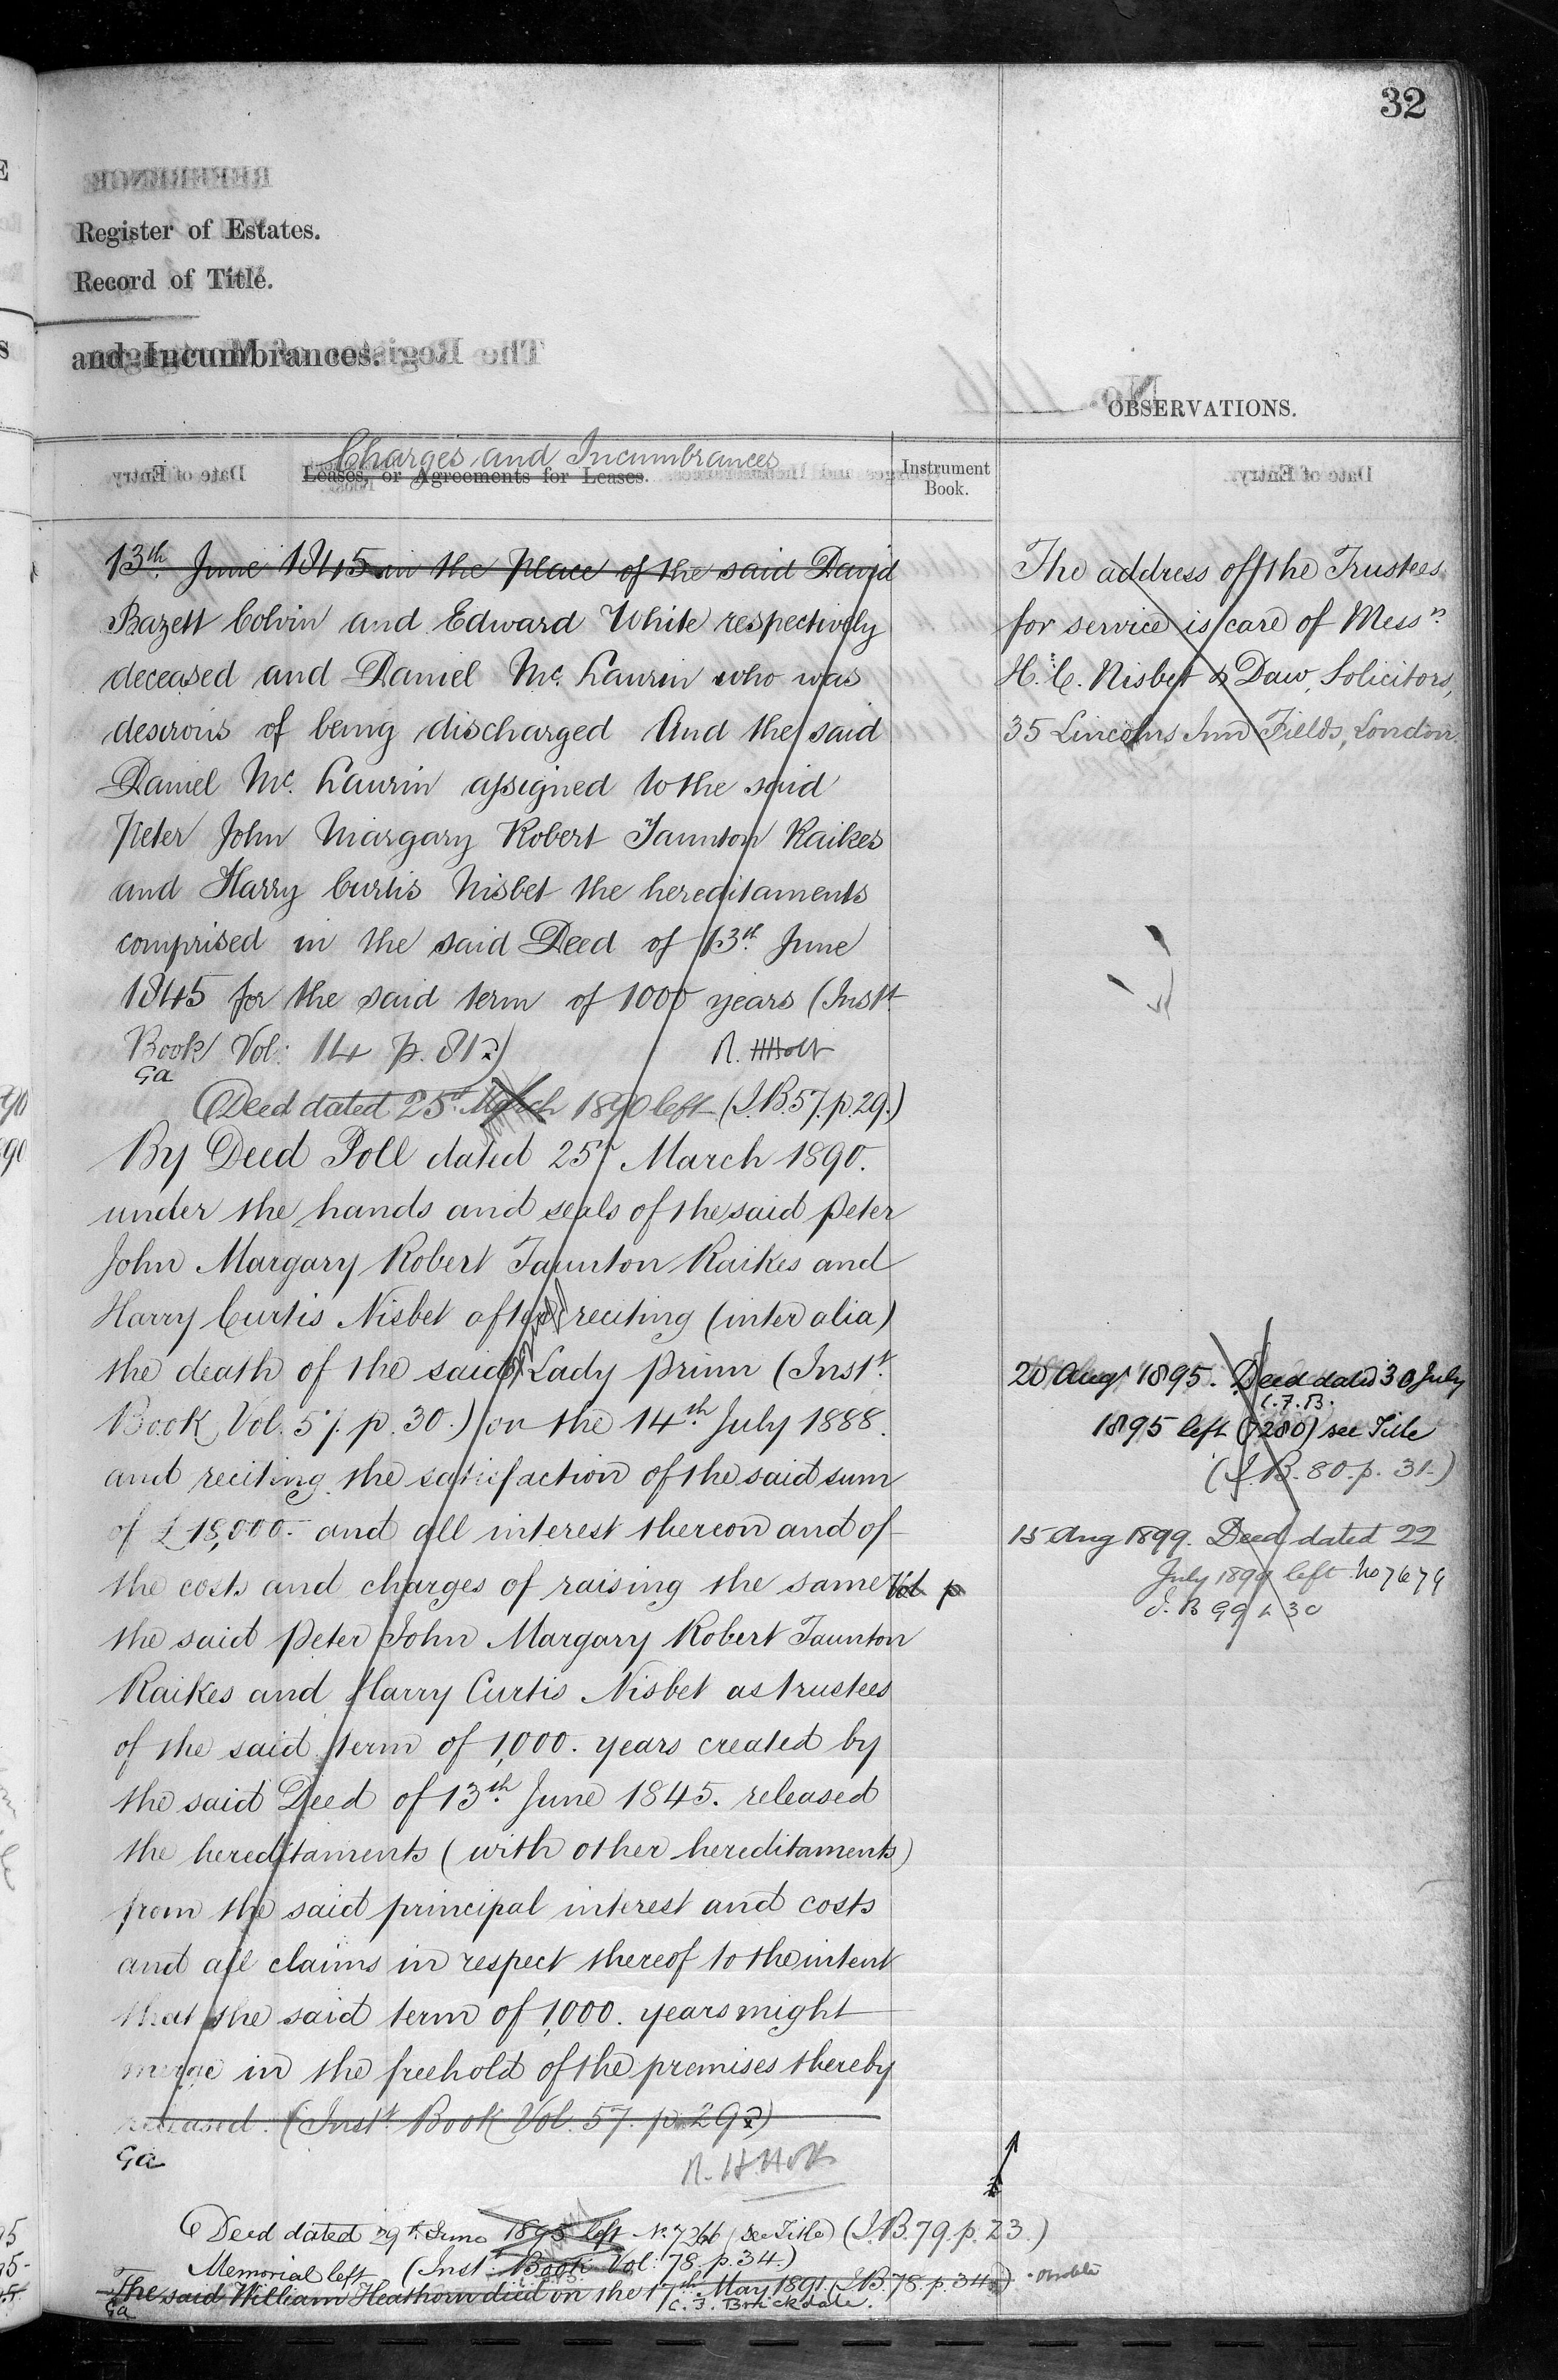 32
Register of Estates.
Record of Title.
and Incumbrances.
OBSERVATIONS.
Charges and Incumbrances
Leases, or Agreements for Leases.
Instrument
Book.
13th June 1845 in the place of the said David
Bazett Colvin and Edward White respectively
deceased and Daniel Mc. Laurin who was
desirous of being discharged And the said
Daniel Mc. Laurin assigned to the said
Peter John Margary Robert Taunton Raikes
and Harry Curtis Nisbet the hereditaments
comprised in the said Deed of 13th June
1845 for the said term of 1000 years (Inst
Book Vol: 14 p. 81)
R. H Holt
Ga
Deed dated 25th March 1890 left (I.B. 57. p. 29.)
By Deed Poll dated 25th March 1890.
under the hands and seals of the said Peter
John Margary Robert Taunton Raikes and
Harry Curtis Nisbet after reciting (inter alia)
the death of the said Lady Prinn (Inst.
Book Vol. 57. p. 30.) on the 14th July 1888.
and reciting the satisfaction of the said sum
of £18,000. and all interest thereon and of
the costs and charges of raising the same Vol p
the said Peter John Margary Robert Taunton
Raikes and Harry Curtis Nisbet as trustees
of the said term of 1,000. years created by
the said Deed of 13th June 1845. released
the hereditaments (with other hereditaments)
from the said principal interest and costs
and all claims in respect thereof to the intent
that the said term of 1,000. years might
merge in the freehold of the premises thereby
released. (Inst Book Vol. 57. p. 29)
Ga
R. H Holt
Deed dated 29th June 1895 left No. 7266 (see Title) (I.B. 79. p. 23.)
Memorial left (Inst: Book Vol: 78. p. 34.)
The said William Heathorn died on the 17th May 1891. (I.B. 78. p. 34)
Ga
C. F. Brickdale.
The address of the Trustees
for service is care of Messrs
H. C. Nisbet & Daw, Solicitors,
35 Lincolns Inn Fields, London.
20 Aug 1895. Deed dated 30 July
C.F.B.
1895 left (7280) see Title
(I.B. 80. p. 31.)
15 Aug 1899. Deed dated 22
July 1899 left No 7679
I. B 99 p 30